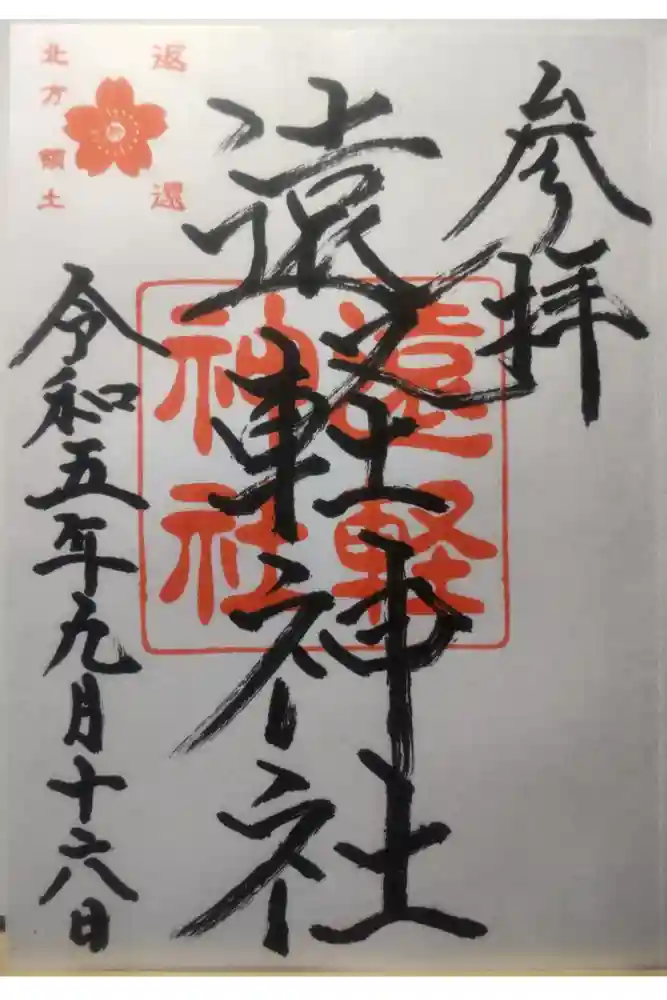 参拝
遠軽神社
遠軽
神社
令和五年九月十六日
返還
北方領土